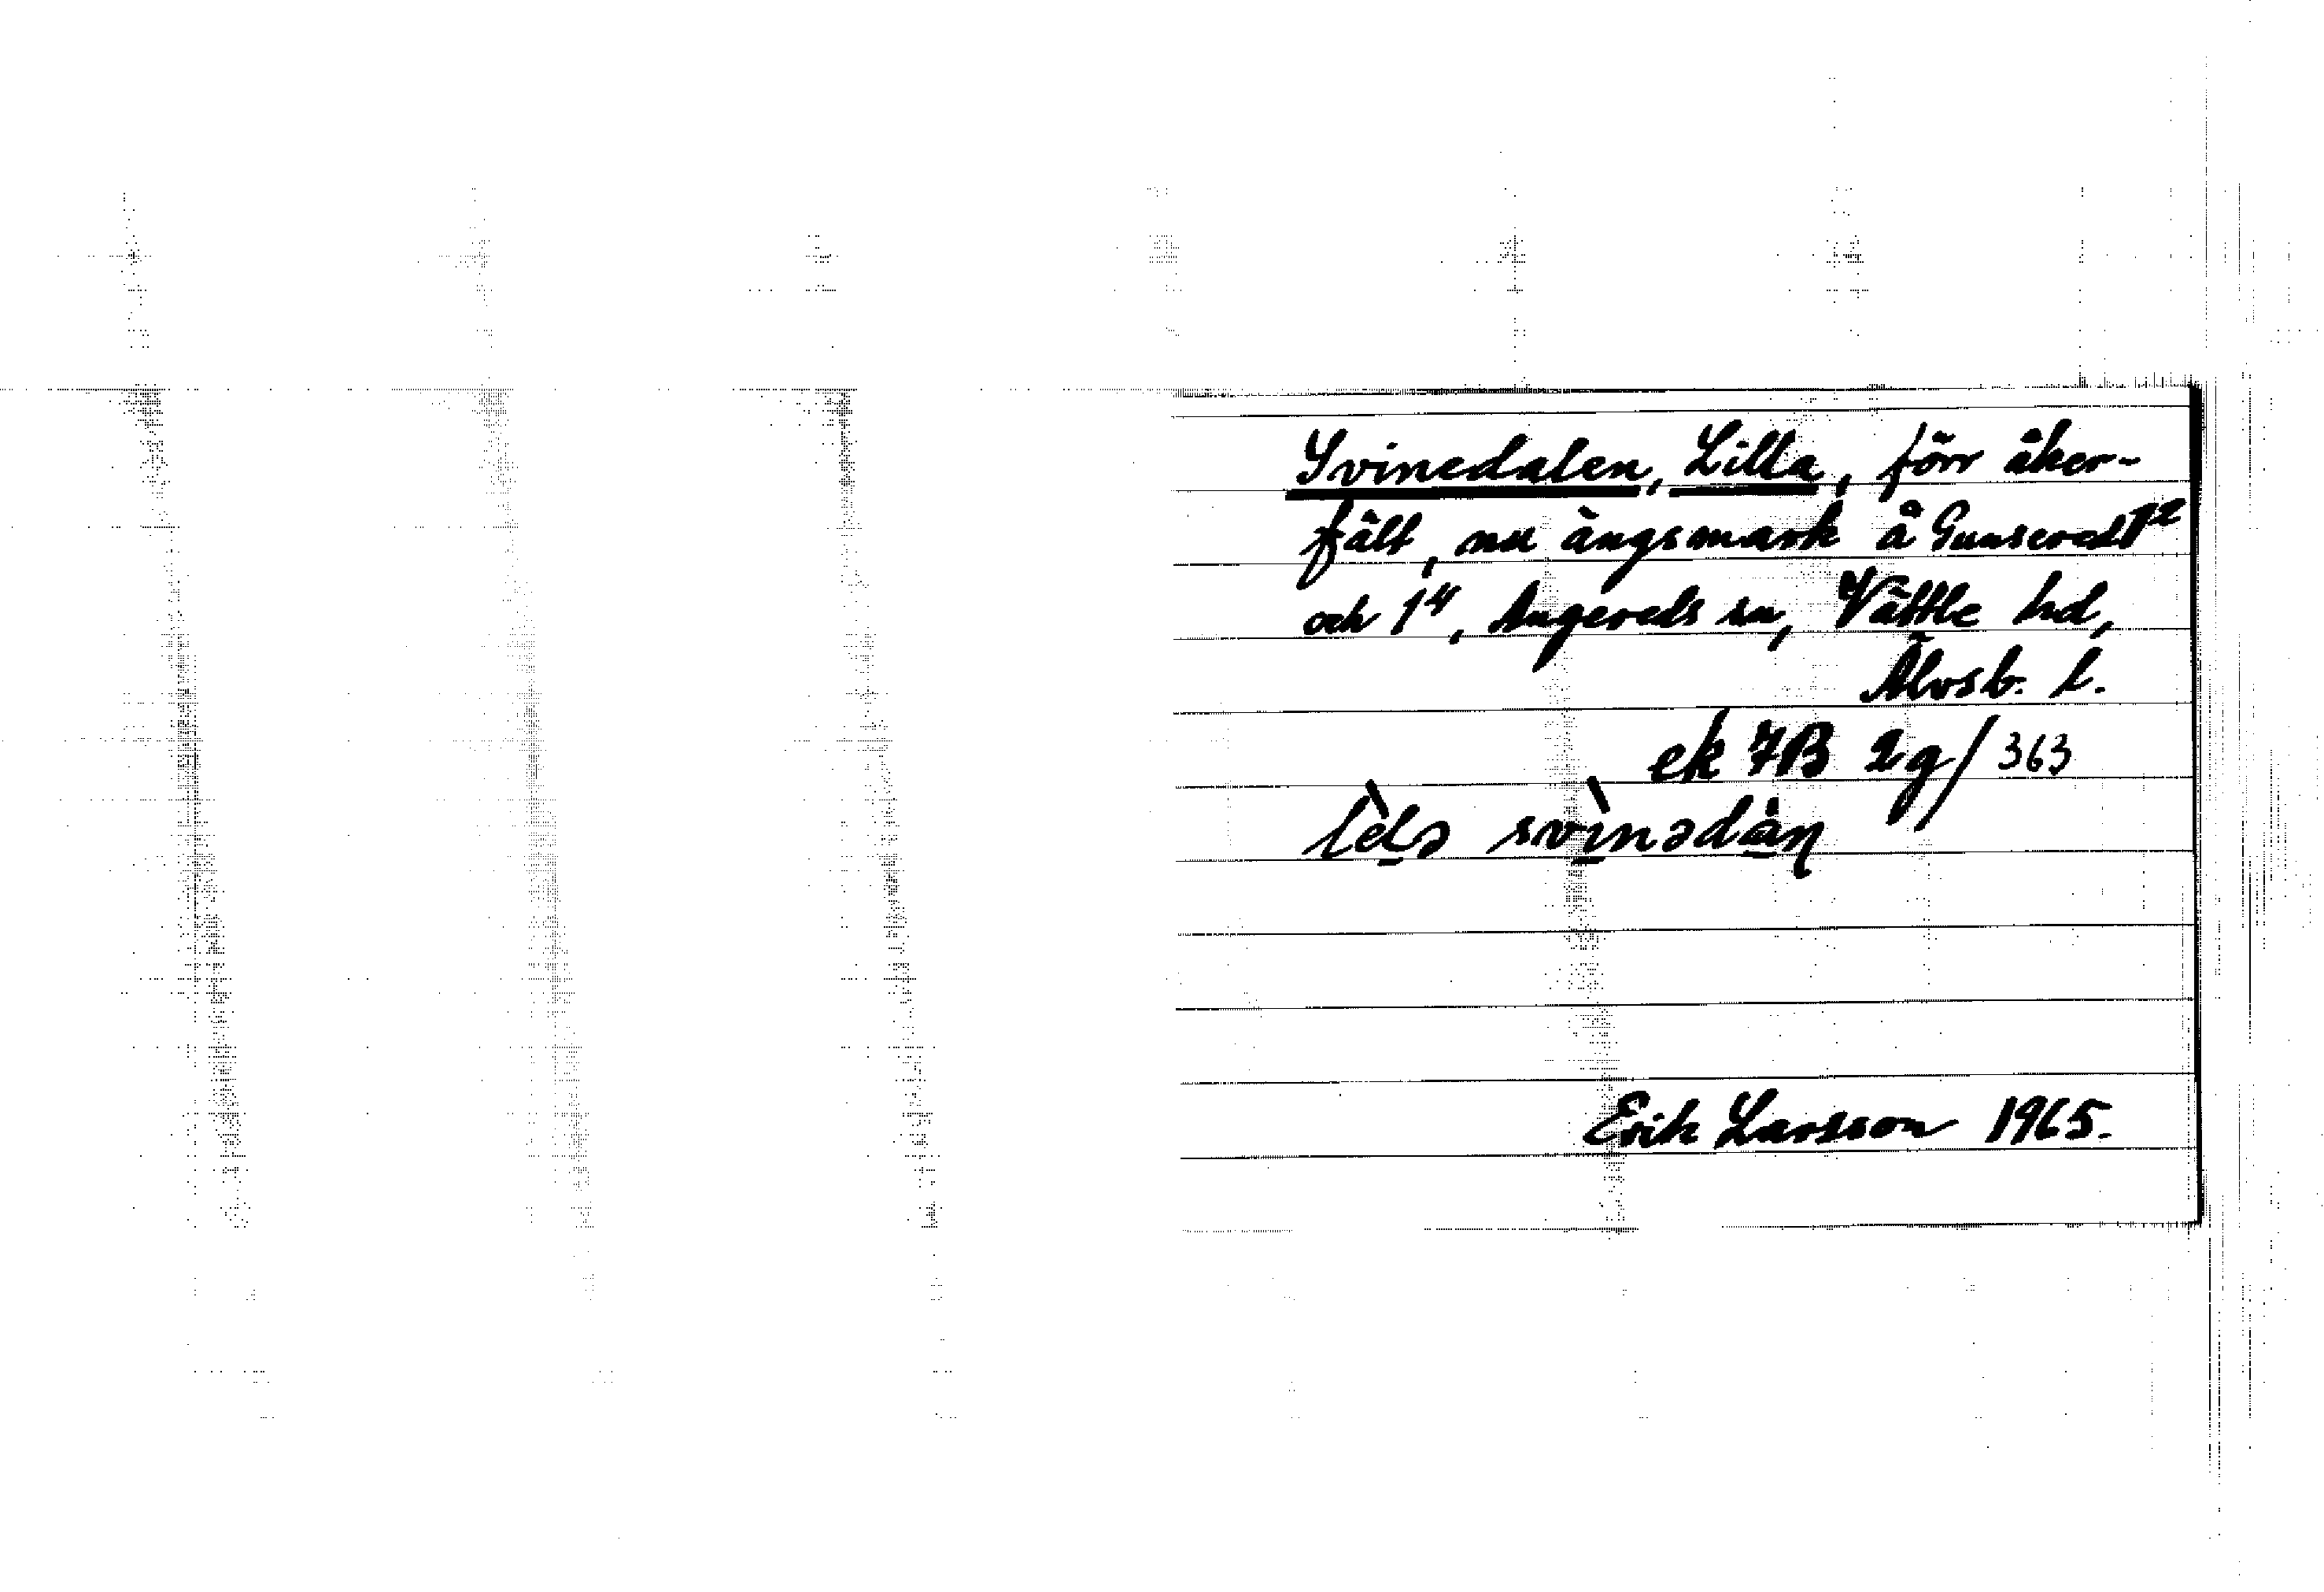 Svinedalen, Lilla, förr åker-
fält, nu ängsmark å Gunsered 1²
och 1⁴, Angereds sn, Vättle hd,
Älvsb. l.
ek 7B 2g/363
lèlə svìnədàn
Erik Larsson 1965.